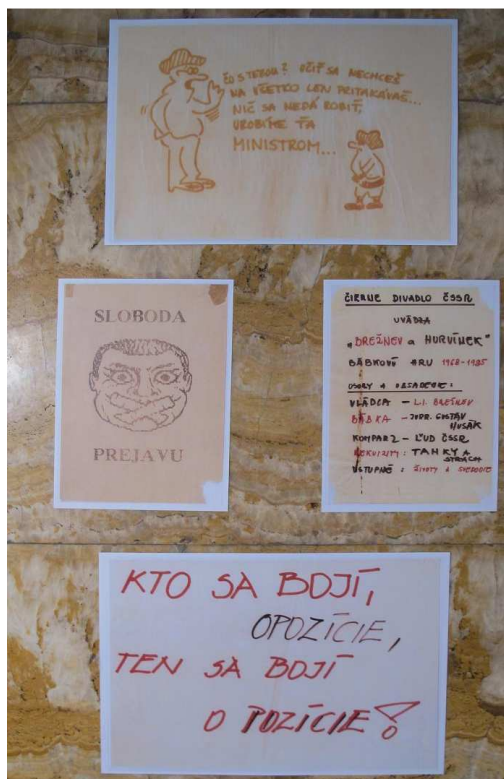 ČO S TEBOU? UČIŤ SA NECHCEŠ
NA VŠETKO LEN PRITAKÁVAŠ...
NIČ SA NEDÁ ROBIŤ,
UROBÍME ŤA
MINISTROM...
SLOBODA
PREJAVU
ČIERNE DIVADLO ČSSR
UVÁDZA
„BREŽNEV a HURVÍNEK"
BÁBKOVÚ HRU 1968-1985
OSOBY A OBSADENIE:
VLÁDCA - L.I. BREŽNEV
BÁBKA - JUDR. GUSTÁV
HUSÁK
KOMPARZ - ĽUD ČSSR
REKVIZITY: TANKY A
STRACH
VSTUPNÉ: ŽIVOTY A SVEDOMIE
KTO SA BOJÍ,
OPOZÍCIE,
TEN SA BOJÍ
O POZÍCIE!